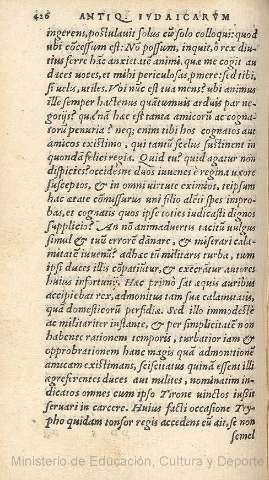 426 ANTIQ. IVDAICARVM
ingerens, postulauit solus cū solo colloqui: quod
ubi cōcessum est: Nō possum, inquit, ô rex diu-
tius ferre hāc anxietatē animi, quæ me cogit au
daces uoces, et mihi periculosas ꝓmere: sed tibi,
si uelis, utiles. Vbi nūc est tua mens? ubi animus
ille semper hactenus quātumuis arduis par ne-
gotijs? quænā hæc est tanta amicorū ac cognato
torū penuria? neq; enim tibi hos cognatos aut
amicos existimo, qui tantū scelus sustinent in
quondā felici regia. Quid tu? quid agatur non
dispicies? occidésne duos iuuenes è regina uxore
susceptos, & in omni uirtute eximios, teipsum
hac ætate cōmissurus uni filio aliēi spes impro-
bas, et cognatis quos ipse toties iudicasti dignos
supplicio? An nō animaduertis tacitū uulgus
simul & tuū errorē dānare, & miserari calami-
tatē iuuenū? adhæc iā militaris turba, tum
ipsi duces illis cōpatiūtur, & execrātur autores
huius infortunij. Hæc primò sat æquis auribus
accipiebat rex, admonitus tam suæ calamitatis,
quā domesticorū perfidiæ. Sed illo immodestè
ac militariter instante, & per simplicitatē non
habente rationem temporis, turbatior iam &
opprobrationem hanc magis quā admonitionē
amicam existimans, sciscitatus quinā essent illi
ægrè ferentes duces aut milites, nominatim in-
dicatos omnes cum ipso Tyrone uinctos iussit
seruari in carcere. Huius facti occasione Try-
pho quidam tonsor regis accedens eū ait, se non
semel
Ministerio de Educación, Cultura y Deporte